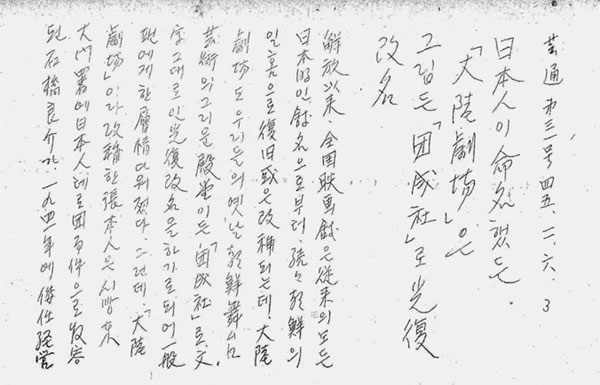 芸通 第三号 四五.一一.六. 3
日本人이命名했든.
「大陸劇場」은
그립든「団成社」로光復
改名
解放以来.全国映画館은従来의모든
日本的인館名으로부터.続々朝鮮의
일홈으로復旧或은改称되는데.大陸
劇場도우리들의옛날朝鮮舞台
芸術의그리운殿堂이든「団成社」로.文
字그대로인光復改名을하기로되어一般
팬에게한層情다워젔다.그런데.「大陸
劇場」이라改称한張本人은시방東
大門署에日本人테로団事件으로収容
된石橋良介가.一九四一年에 経営